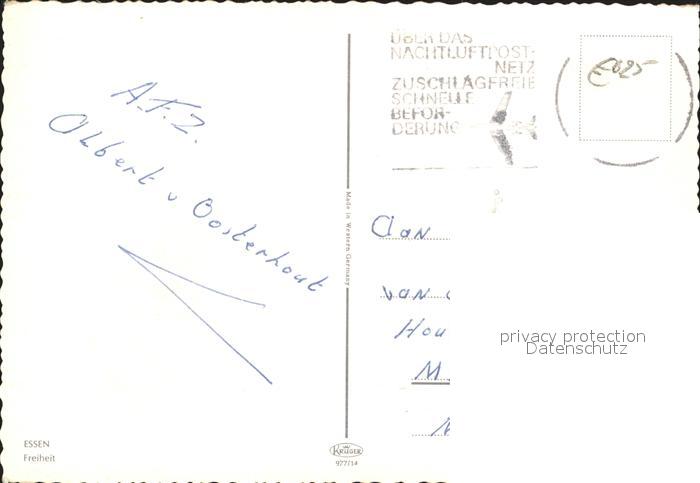 A.F.Z.
v Oosterhout
ESSEN
Freiheit
Made in Western Germany
KRÜGER
977/14
ÜBER DAS
NACHTLUFTPOST-
NETZ
ZUSCHLAGFREIE
SCHNELLE
BEFÖR-
DERUNG
van
Hou
M.
privacy protection
Datenschutz